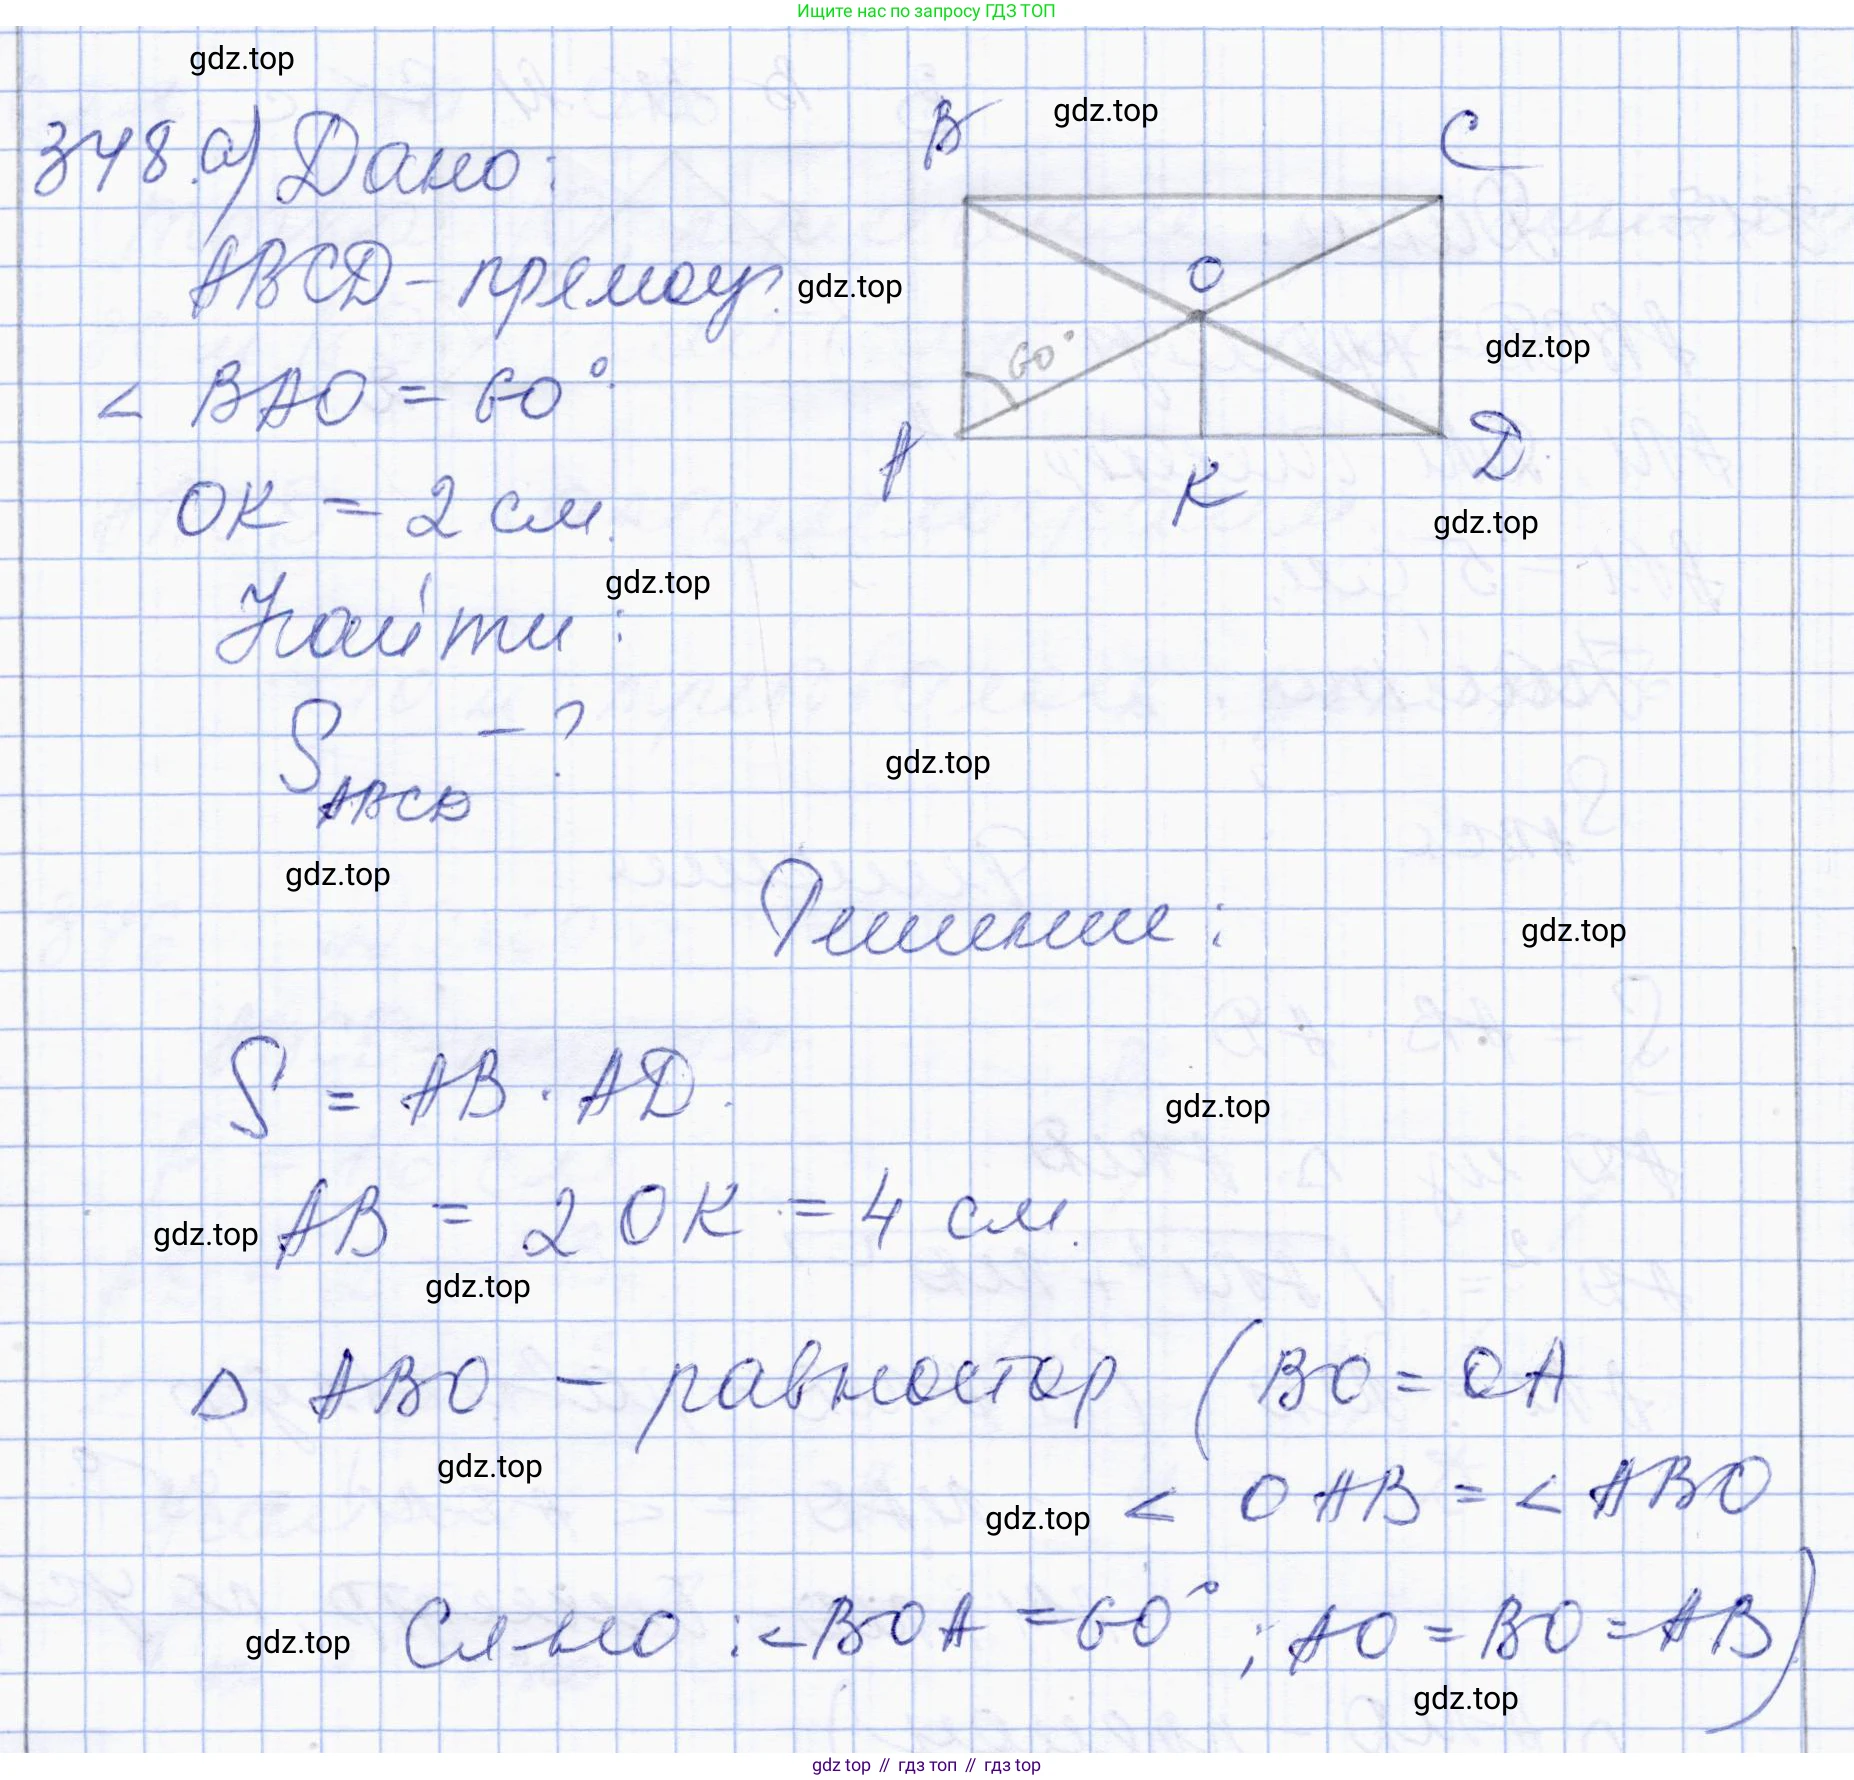 Ищите нас по запросу ГДЗ ТОП
gdz.top
348.а) Дано:
B
gdz.top
C
ABCD - прямоуг.
gdz.top
O
60°
gdz.top
< BAO = 60°.
A
K
D
OK = 2 см.
gdz.top
gdz.top
Найти:
S ABCD - ?
gdz.top
gdz.top
Решение:
gdz.top
S = AB · AD.
gdz.top
AB = 2 OK = 4 см.
gdz.top
gdz.top
Δ ABO - равностор (BO = OA
gdz.top
gdz.top
< OAB = < ABO
gdz.top
Сл-но: < BOA = 60°; AO = BO = AB)
gdz.top
gdz top // гдз топ // гдз top